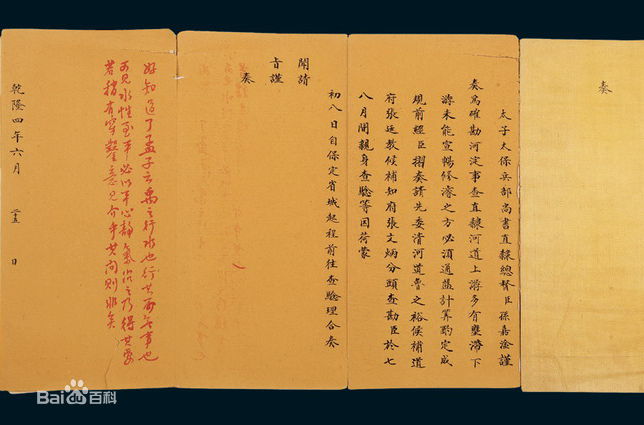 奏
太子太保兵部尚書直隸總督臣孫嘉淦謹
奏為確勘河淀事查直隸河道上游多有壅滯下
游未能宣暢修濬之方必須通盤計算酌定成
規前經臣摺奏請先委清河道魯之裕候補道
府張廷教候補知府張文炳分頭查勘臣於七
八月間親身查驗等因荷蒙
初八日自保定省城起程前往查驗理合奏
聞請
旨謹
奏
好知道了孟子云禹之行水也行其所無事也
可見水性至平必以平心靜氣治之乃得其要
若稍有穿鑿意見介乎其間則非矣
乾隆四年六月 二十五 日
Baidu百科